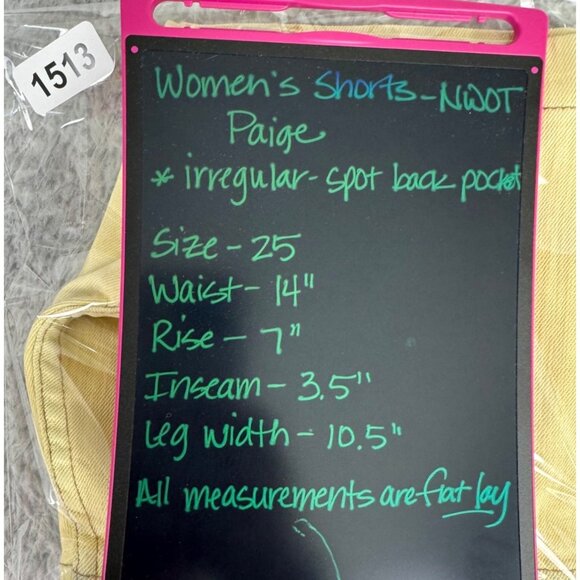 1513
Women's Shorts - NWOT
Paige
* irregular - spot back pocket
Size - 25
Waist - 14"
Rise - 7"
Inseam - 3.5"
Leg width - 10.5"
All measurements are flat lay